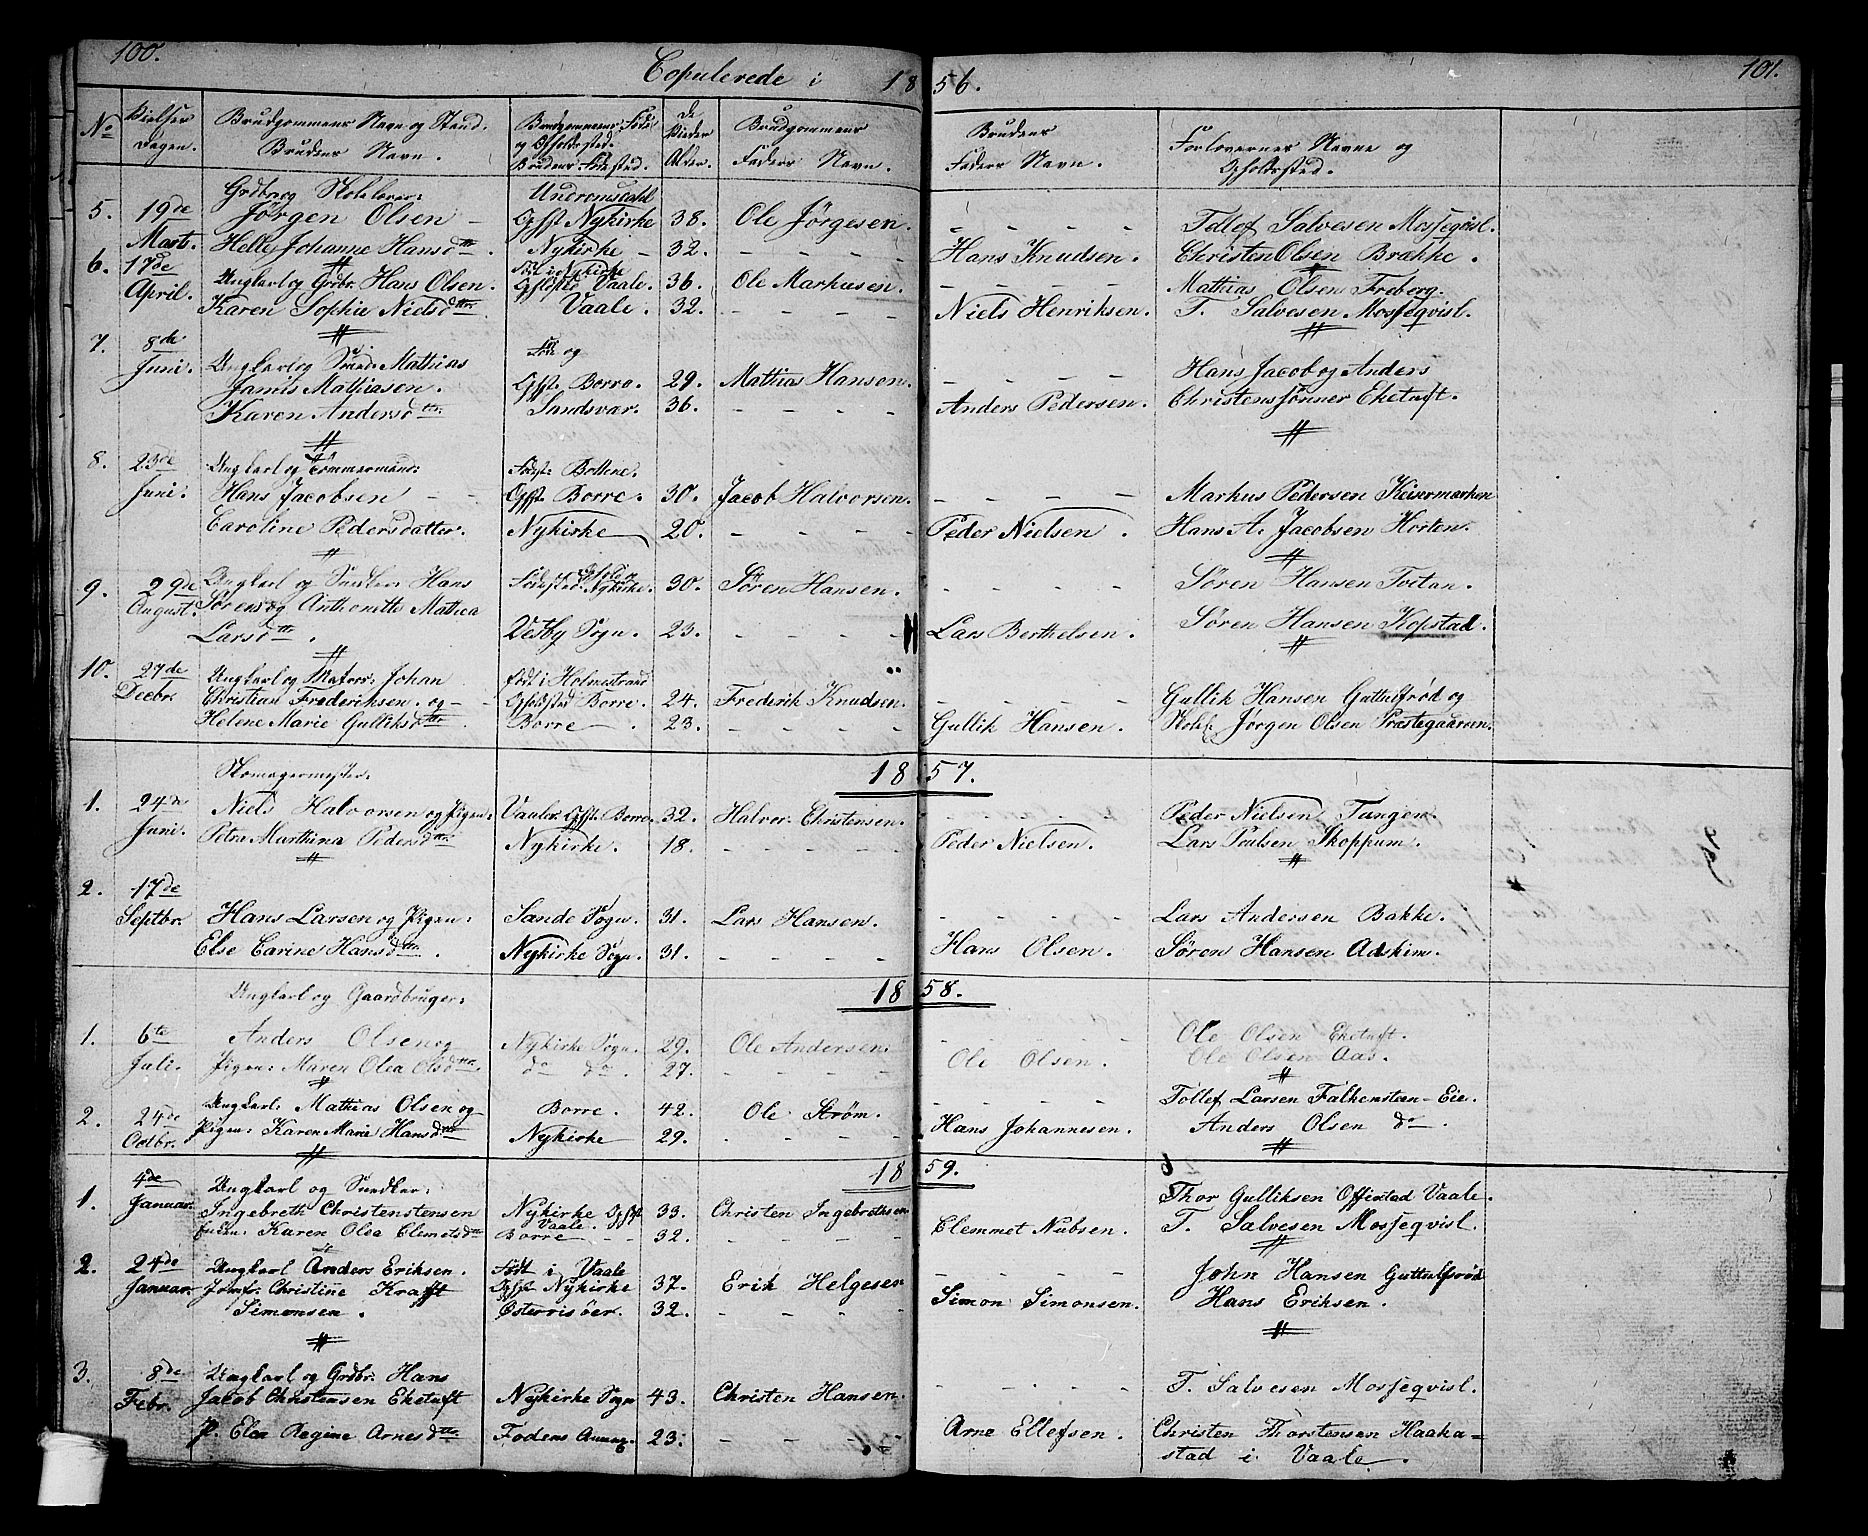 100.
Copulerede i 1856.
101.
No
Vielses Dagen.
Brudgommens Navn og Stand.
Brudens Navn.
Brudgommens Føde og Opholdssted.
Brudens Fødested.
De Viedes Alder.
Brudgommens Faders Navn.
Brudens Faders Navn.
Forlovernes Navne og Opholdssted.
5. 19de Marts.
Grdbr og Skolelærer:
Jørgen Olsen – Opfst Nykirke 38. Ole Jørgesen – – – – Tollef Salvesen Mossegvisl.
Helle Johanne Hansdttr. Nykirke – 32. – – – – Hans Knudsen. Christen Olsen Brække.
6. 17de April.
Født i Nykirke
Ungkarl og Grdbr. Hans Olsen. Opfsted Vaale. 36. Ole Markusen. – – – – Mathias Olsen Freberg.
Karen Sophie Nielsdttr. Vaale. 32. – – – – Niels Henriksen. T. Salvesen Mossegvisl.
7. 8de Juni.
Ungkarl og Smed: Mathias Født og Hans Jacob og Anders
Mathiasen. Opfst. Borre. 29. Mathias Hansen. – – – – Christensønner Eketuft.
Karen Andersdttr. Sandsvær. 36. – – – – Anders Pedersen.
8. 23de Juni.
Ungkarl og Tømmermand: Fødst: Bottene.
Hans Jacobsen – – Opfst Borre. 30. Jacob Halvorsen. – – – – Markus Pedersen Keisermarken
Caroline Pedersdatter. Nykirke 20. – – – – Peder Nielsen. Hans A. Jacobsen Horten.
9. 29de August.
Ungkarl og Snedker: Hans Fødested Nykirke. 30. Søren Hansen. – – – – Søren Hansen Tveitan.
Sørens og Anthonette Mathea
Larsdttr. Vestby Sogn. 23. – – – – Lars Berthelsen. Søren Hansen Kopstad.
10. 27de Decbr.
Ungkarl og Matros: Johan Født i Holmestrand
Christian Frederiksen. og – Opholdsted Borre. 24. Frederik Knudsen. – – – – Gullik Hansen Guttulfsrød og
Helene Marie Gulliksdttr. Borre 23. – – – – Gullik Hansen. Skolel. Jørgen Olsen Præstegaarden.
1857.
Skomagermester:
1. 24de Juni.
Niels Halvorsen og Pigen: Vaale Opfst. Borre. 32. Halvor Christensen. – – – – Peder Nielsen Tangen.
Petra Marthina Pedersdttr. Nykirke. 18. – – – – Peder Nielsen. Lars Poulsen Skoppum.
2. 17de Septbr.
Hans Larsen og Pigen: Sande Sogn. 31. Lars Hansen. – – – – Lars Andersen Bakke.
Else Carine Hansdttr. Nykirke Sogn. 31. – – – – Hans Olsen. Søren Hansen Adskim.
1858.
Ungkarl og Gaardbruger:
1. 6te Juli.
Anders Olsen og Nykirke Sogn. 29. Ole Andersen. – – – – Ole Olsen Eketuft.
Pigen: Maren Olea Olsdttr. do do. 27. Ole Olsen. Ole Olsen Aas.
2. 24de Octbr.
Ungkarl: Mathias Olsen og Borre. 42. Ole Strøm. – – – – Tollef Larsen Falkensteen-Eie.
Pigen: Karen Marie Hansdttr Nykirke 29. – – – – Hans Johannesen. Anders Olsen do.
1859.
1. 4de Januar.
Ungkarl og Snedker: Thor Gulliksen Offistad Vaale.
Ingebreth Christenstensen Nykirke Opfst Vaale. 33. Christen Ingebrethsen
Enken: Karen Olea Clemetsdttr Borre – – 32. – – – – Clemmet Nubsen. T. Salvesen Mossegvisl.
2. 24de Januar.
Ungkarl Anders Eriksen. Født i Vaale John Hansen Guttulfsrød
Jomfr: Christine Krafft Opfst Nykirke 37. Erik Helgesen – – – –
Simonsen. Østerrisøer. 32. – – – Simon Simonsen. Hans Eriksen.
3. 8de Febr.
Ungkarl og Grdbr. Hans
Jacob Christensen Eketuft Nykirke Sogn 43. Christen Hansen. – – – – T. Salvesen Mossegvisl.
P. Elen Regine Arnesdttr Fodens Annex. 23. – – – – Arne Ellefsen. Christen Thorstensen Haaka=
stad i Vaale.